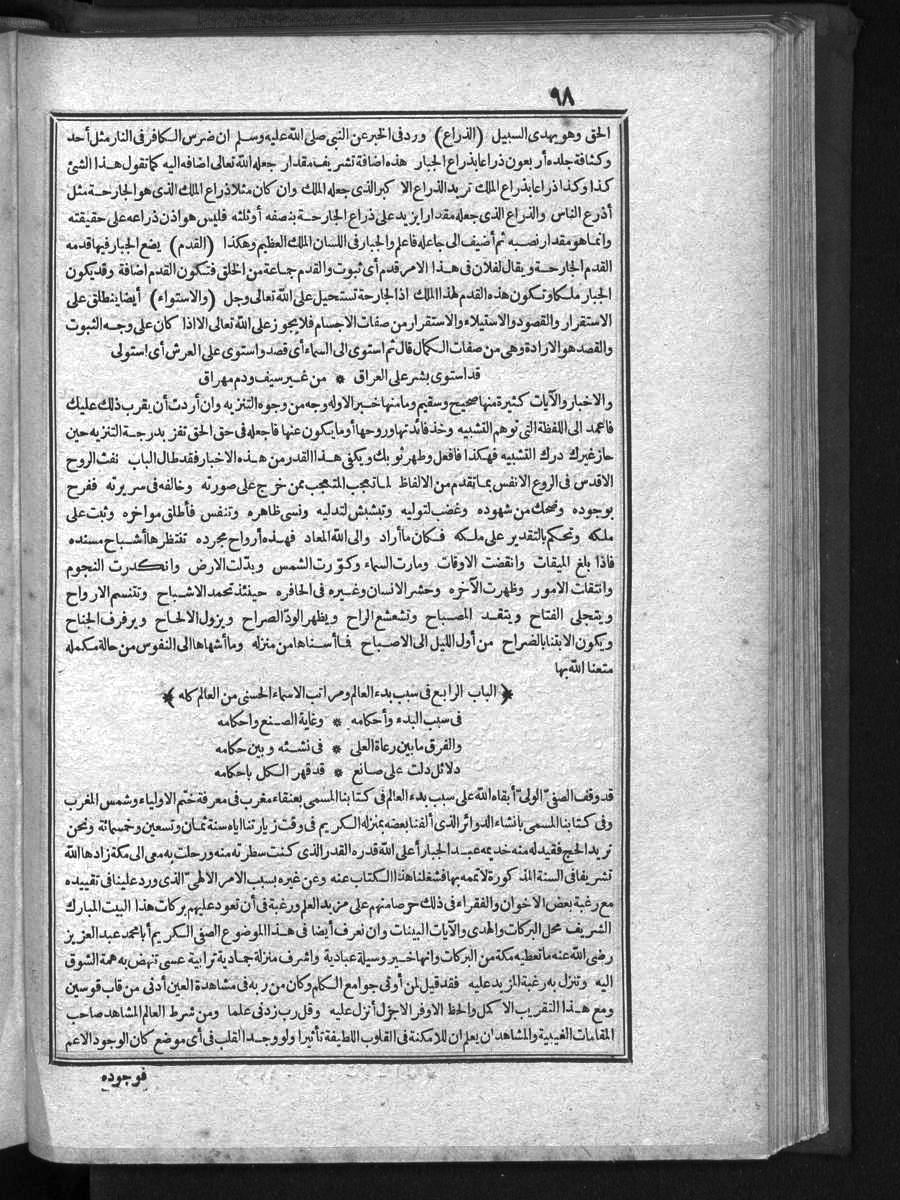 ٩٨
الحق وهو يهدى السبيل (الذراع) ورد فى الخبر عن النبى صلى الله عليه وسلم ان ضرس الكافر فى النار مثل أحد
وكثافة جلده أربعون ذراعا بذراع الجبار هذه اضافة تشريف مقدار جعله الله تعالى اضافه اليه كما تقول هذا الشئ
كذا وكذا ذراعا بذراع الملك تريد الذراع الاكبر الذى جعله الملك وان كان مثلا ذراع الملك الذى هو الجارحة مثل
أذرع الناس والذراع الذى جعله مقدارا يزيد على ذراع الجارحة بنصفه أو ثلثه فليس هو اذن ذراعه على حقيقته
وانما هو مقدار نصبه ثم أضيف الى جاعله فاعلم والجبار فى اللسان الملك العظيم وهكذا (القدم) يضع الجبار فيها قدمه
القدم الجارحة ويقال لفلان فى هذا الامر قدم أى ثبوت والقدم جماعة من الخلق فتكون القدم اضافة وقد يكون
الجبار ملكا وتكون هذه القدم لهذا الملك اذ الجارحة تستحيل على الله تعالى وجل (والاستواء) أيضا ينطلق على
الاستقرار والقصد والاستيلاء والاستقرار من صفات الاجسام فلا يجوز على الله تعالى الا اذا كان على وجه الثبوت
والقصد هو الارادة وهى من صفات الكمال قال ثم استوى الى السماء أى قصد واستوى على العرش أى استولى
قد استوى بشر على العراق * من غير سيف ودم مهراق
والاخبار والآيات كثيرة منها صحيح وسقيم وما منها خبر الا وله وجه من وجوه التنزيه وان أردت أن يقرب ذلك عليك
فاعمد الى اللفظة التى توهم التشبيه وخذ فائدتها وروحها أو ما يكون عنها فاجعله فى حق الحق تفز بدرجة التنزيه حين
حاز غيرك درك التشبيه فهكذا فافعل وطهر ثوبك ويكفى هذا القدر من هذه الاخبار فقد طال الباب نفث الروح
الاقدس فى الروع الانفس بما تقدم من الالفاظ لما تعجب المتعجب ممن خرج على صورته وخالفه فى سريرته ففرح
بوجوده وضحك من شهوده وغضب لتوليه وتبشبش لتدليه ونسى ظاهره وتنفس فأطلق مواخره وثبت على
ملكه وتحكم بالتقدير على ملكه فكان ما أراد والى الله المعاد فهذه أرواح مجرده تنتظرها أشباح مسنده
فاذا بلغ الميقات وانقضت الاوقات ومارت السماء وكوّرت الشمس وبدّلت الارض وانكدرت النجوم
وانتقلت الامور وظهرت الآخره وحشر الانسان وغيره فى الحافره حينئذ تحمد الاشباح وتتنسم الارواح
ويتجلى الفتاح ويتقد المصباح وتشعشع الراح ويظهر الودّ الصراح ويزول الالحاح ويرفرف الجناح
ويكون الابتنا بالضراح من أول الليل الى الاصباح فما أسناها من منزله وما أشهاها الى النفوس من حالة مكمله
متعنا الله بها
﴿الباب الرابع فى سبب بدء العالم ومراتب الاسماء الحسنى من العالم كله﴾
فى سبب البدء وأحكامه * وغاية الصنع واحكامه
والفرق ما بين رعاة العلى * فى نشئه وبين حكامه
دلائل دلت على صانع * قد قهر الكل باحكامه
قد وقف الصفىّ الولىّ أبقاه الله على سبب بدء العالم فى كتابنا المسمى بعنقاء مغرب فى معرفة ختم الاولياء وشمس المغرب
وفى كتابنا المسمى بانشاء الدوائر الذى ألفنا بعضه بمنزله الكريم فى وقت زيارتنا اياه سنة ثمان وتسعين وخمسمائة ونحن
نريد الحج فقيد له منه خديمه عبد الجبار أعلى الله قدره القدر الذى كنت سطرته منه ورحلت به معى الى مكة زادها الله
تشريفا فى السنة المذكورة لاتممه بها فشغلنا هذا الكتاب عنه وعن غيره بسبب الامر الالهىّ الذى ورد علينا فى تقييده
مع رغبة بعض الاخوان والفقراء فى ذلك حرصا منهم على مزيد العلم ورغبة فى أن تعود عليهم بركات هذا البيت المبارك
الشريف محل البركات والهدى والآيات البينات وان نعرف أيضا فى هذا الموضوع الصفى الكريم أبا محمد عبد العزيز
رضى الله عنه ما تعطيه مكة من البركات وانها خير وسيلة عبادية واشرف منزلة جمادية ترابية عسى تنهض به همة الشوق
اليه وتنزل به رغبة المزيد عليه فقد قيل لمن أوتى جوامع الكلم وكان من ربه فى مشاهدة العين أدنى من قاب قوسين
ومع هذا التقريب الاكمل والحظ الاوفر الاجزل أنزل عليه وقل رب زدنى علما ومن شرط العالم المشاهد صاحب
المقامات الغيبية والمشاهد أن يعلم ان للامكنة فى القلوب اللطيفة تأثيرا ولو وجد القلب فى أى موضع كان الوجود الاعم
فوجوده